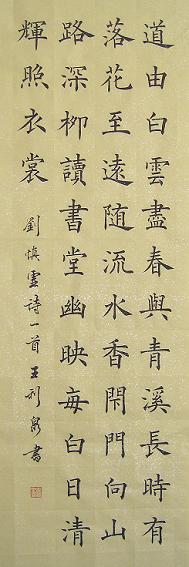 道由白雲盡春與青溪長時有
落花至遠随流水香閑門向山
路深柳讀書堂幽映每白日清
輝照衣裳
劉慎虛詩一首王利泉書